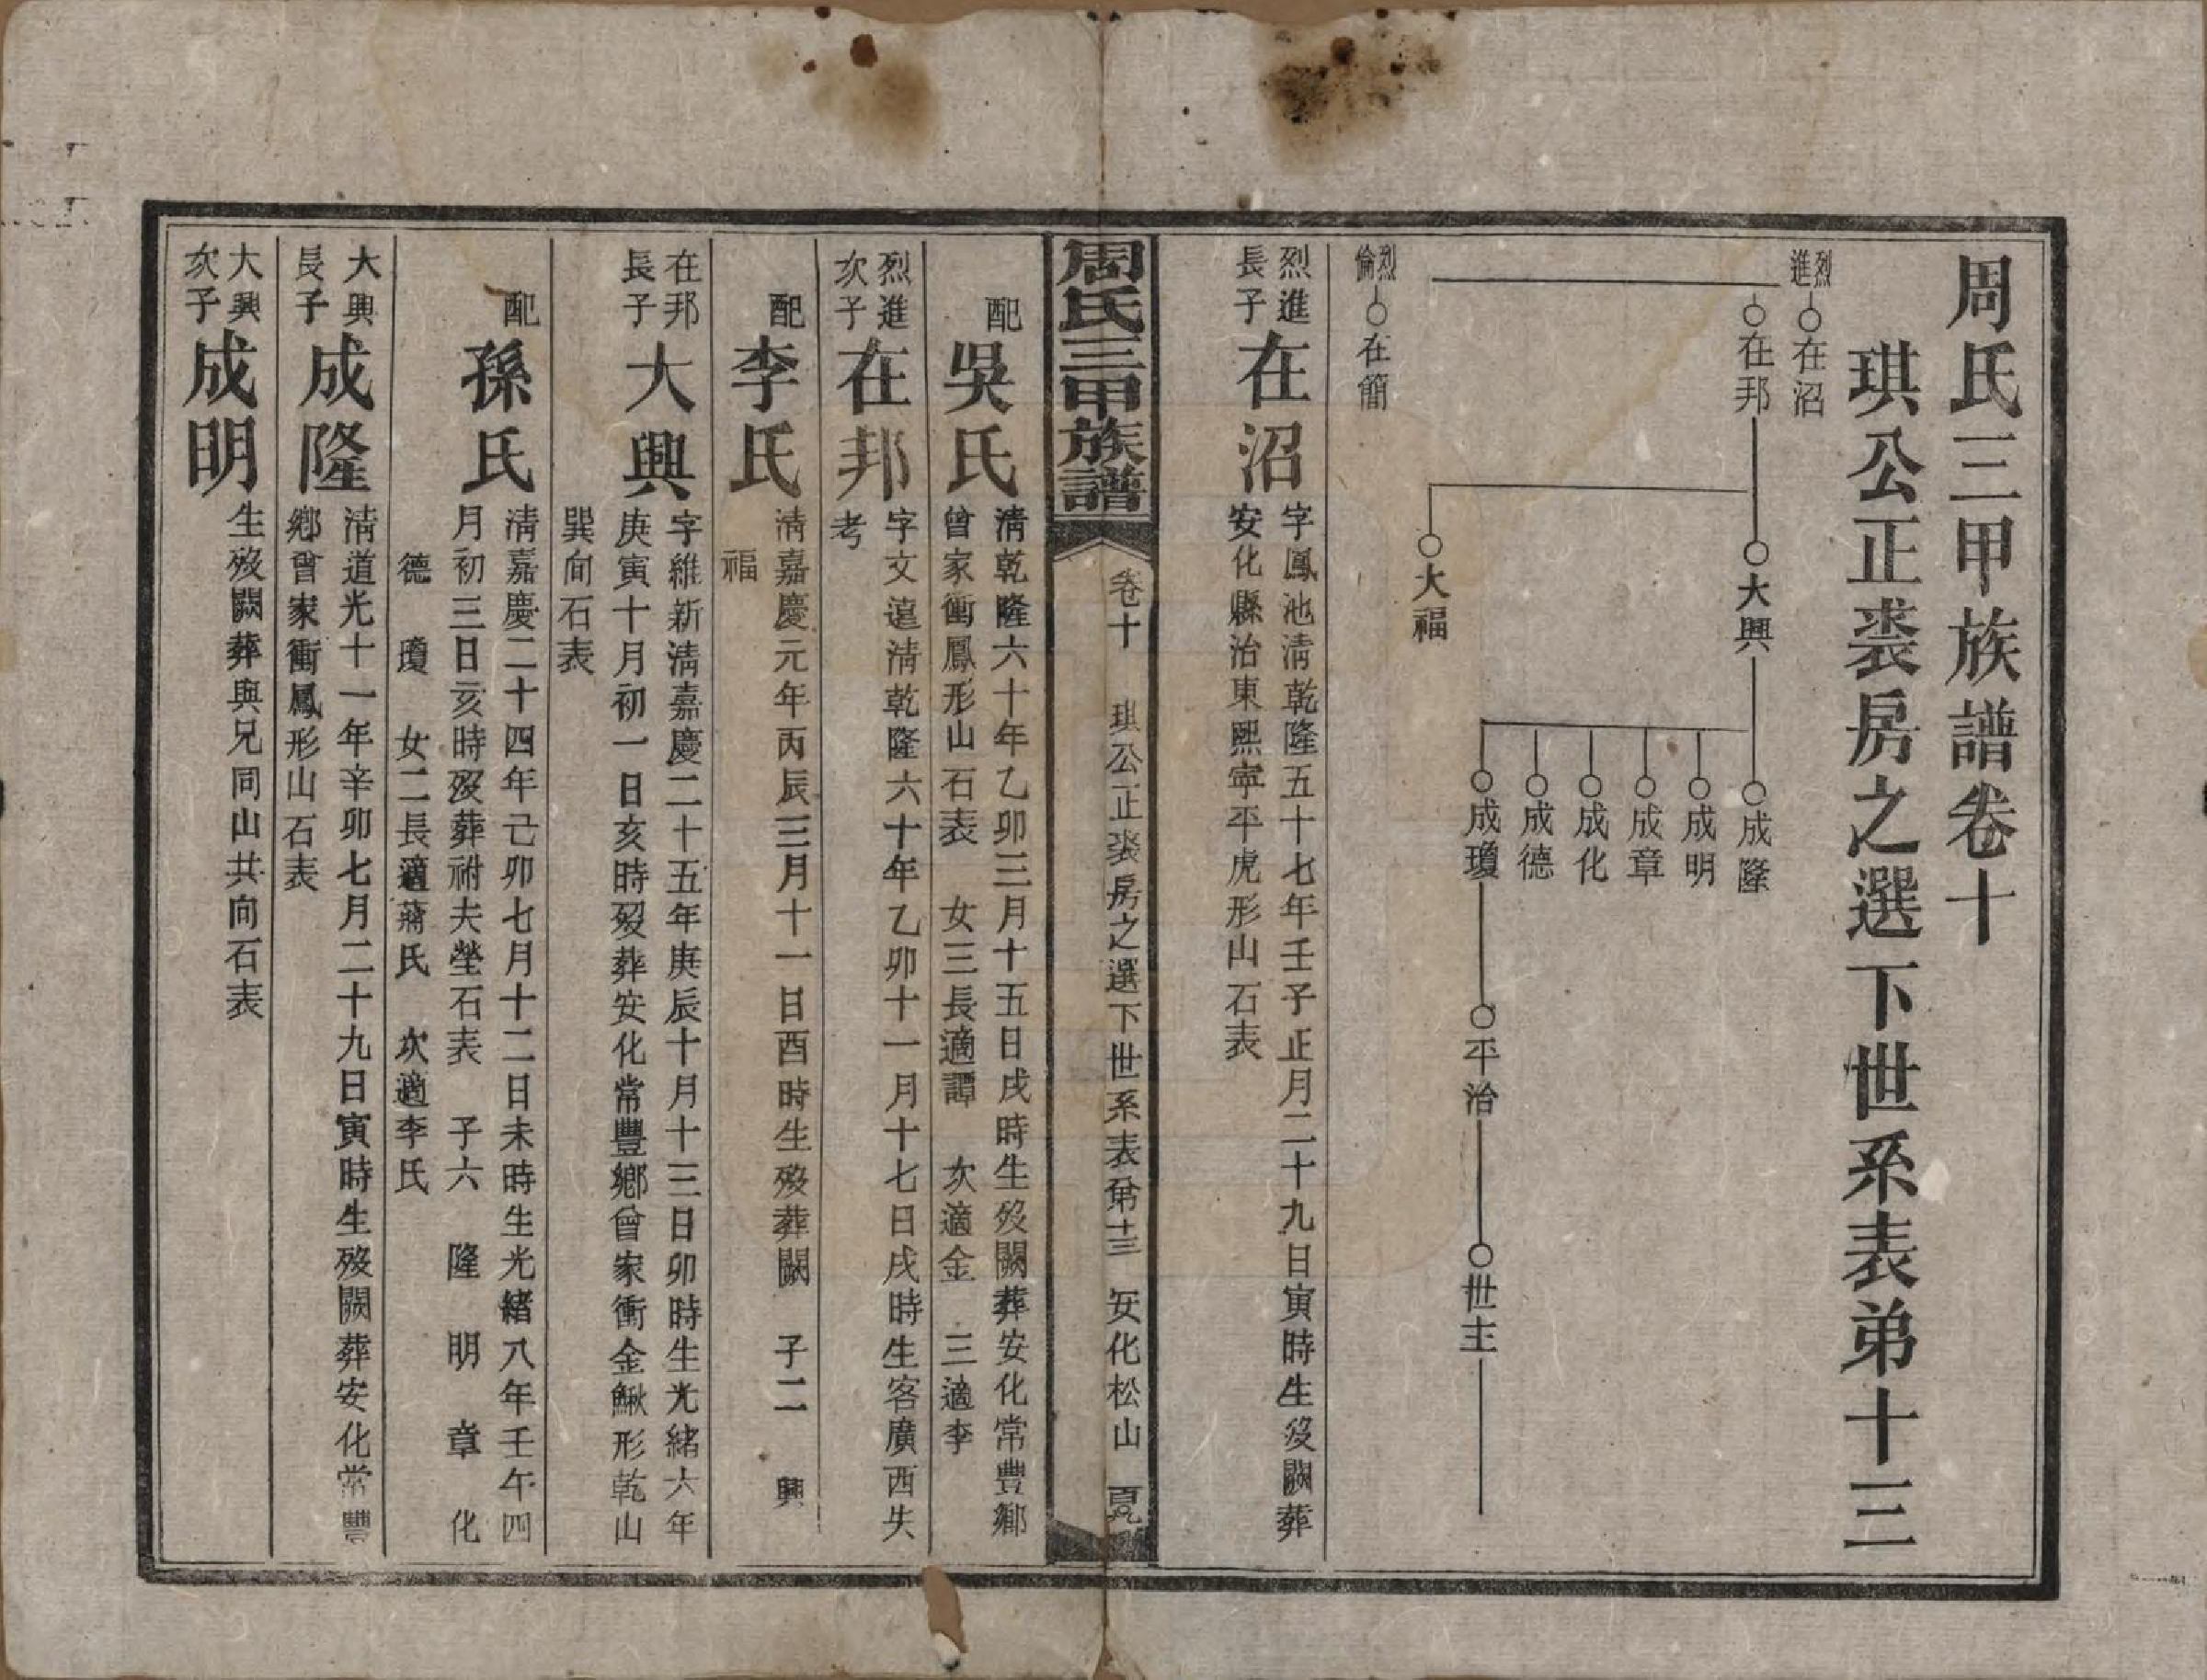 周氏三甲族譜卷十
琪公正裘房之選下世系表弟十三
烈進
在沼
在邦
大興
成隆
成明
成章
成化
成德
成瓊
平治
世主
大福
烈倫
在簡
烈進長子
在沼
字鳳池清乾隆五十七年壬子正月二十九日寅時生歿闕葬
安化縣治東熙寧平虎形山石表
周氏三甲族譜
卷十
琪公正裘房之選下世系表弟十三
安化松山
配
吳氏
清乾隆六十年乙卯三月十五日戌時生歿闕葬安化常豐鄉
曾家衝鳳形山石表 女三長適譚 次適金 三適李
烈進次子
在邦
字文遠清乾隆六十年乙卯十一月十七日戌時生客廣西失
考
配
李氏
清嘉慶元年丙辰三月十一日酉時生歿葬闕 子二 興
福
在邦長子
大興
字維新清嘉慶二十五年庚辰十月十三日卯時生光緒六年
庚寅十月初一日亥時歿葬安化常豐鄉曾家衝金鰍形乾山
巽向石表
配
孫氏
清嘉慶二十四年己卯七月十二日未時生光緒八年壬午四
月初三日亥時歿葬祔夫塋石表 子六 隆 明 章 化
德 瓊 女二長適蔣氏 次適李氏
大興長子
成隆
清道光十一年辛卯七月二十九日寅時生歿闕葬安化常豐
鄉曾家衝鳳形山石表
大興次子
成明
生歿闕葬與兄同山共向石表